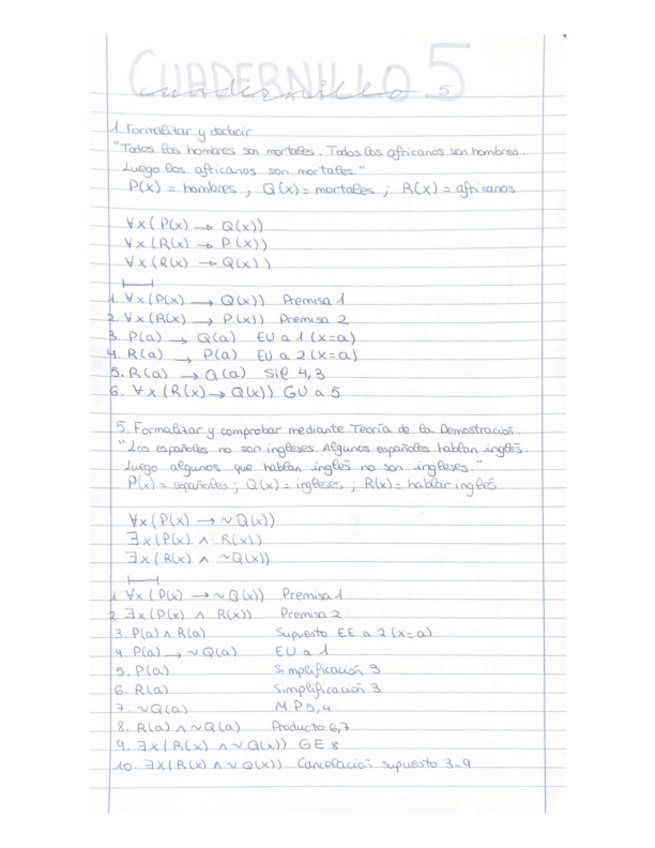 CUADERNILLO 5
cuadernillo 5
1. Formalitar y deducir
"Todos los hombres son mortales. Todos los africanos son hombres.
Luego los africanos son mortales."
P(x) = hombres ; Q(x) = mortales ; R(x) = africanos
∀x (P(x) → Q(x))
∀x (R(x) → P(x))
∀x (R(x) → Q(x))
1. ∀x (P(x) → Q(x)) Premisa 1
2. ∀x (R(x) → P(x)) Premisa 2
3. P(a) → Q(a) EU a 1 (x=a)
4. R(a) → P(a) EU a 2 (x=a)
5. R(a) → Q(a) Sil 4,3
6. ∀x (R(x) → Q(x)) GU a 5
5. Formalitar y comprobar mediante Teoría de la Demostración.
"Los españoles no son ingleses. Algunos españoles hablan inglés.
Luego algunos que hablan inglés no son ingleses."
P(x) = españoles ; Q(x) = ingleses ; R(x) = hablar inglés
∀x (P(x) → ~Q(x))
∃x (P(x) ∧ R(x))
∃x (R(x) ∧ ~Q(x))
1. ∀x (P(x) → ~Q(x)) Premisa 1
2. ∃x (P(x) ∧ R(x)) Premisa 2
3. P(a) ∧ R(a) Supuesto EE a 2 (x=a)
4. P(a) → ~Q(a) EU a 1
5. P(a) Simplificación 3
6. R(a) Simplificación 3
7. ~Q(a) MP 5,4
8. R(a) ∧ ~Q(a) Producto 6,7
9. ∃x (R(x) ∧ ~Q(x)) GE 8
10. ∃x (R(x) ∧ ~Q(x)) Cancelación supuesto 3-9